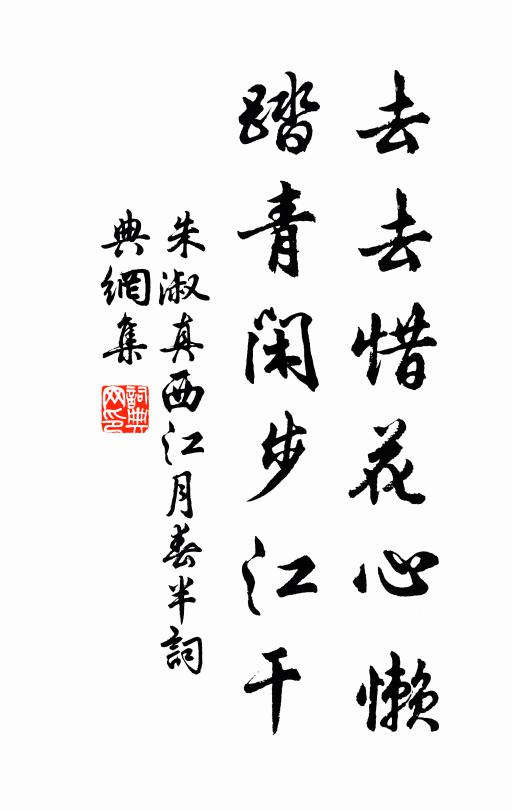 去去惜花心懶
踏青閑步江干
朱淑真西江月春半詞
典網集
詞典
网印